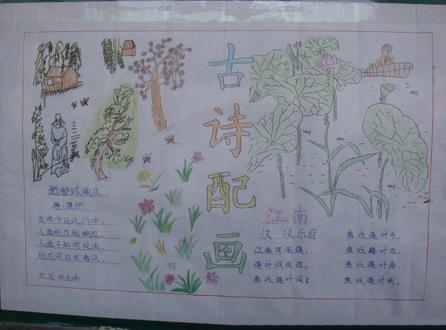 古诗配画
题都城南庄
唐·崔护
去年今日此门中，
人面桃花相映红。
人面不知何处去，
桃花依旧笑春风。
江南
汉 汉乐府
江南可采莲，
莲叶何田田，
鱼戏莲叶间；
鱼戏莲叶东，
鱼戏莲叶西，
鱼戏莲叶南，
鱼戏莲叶北。